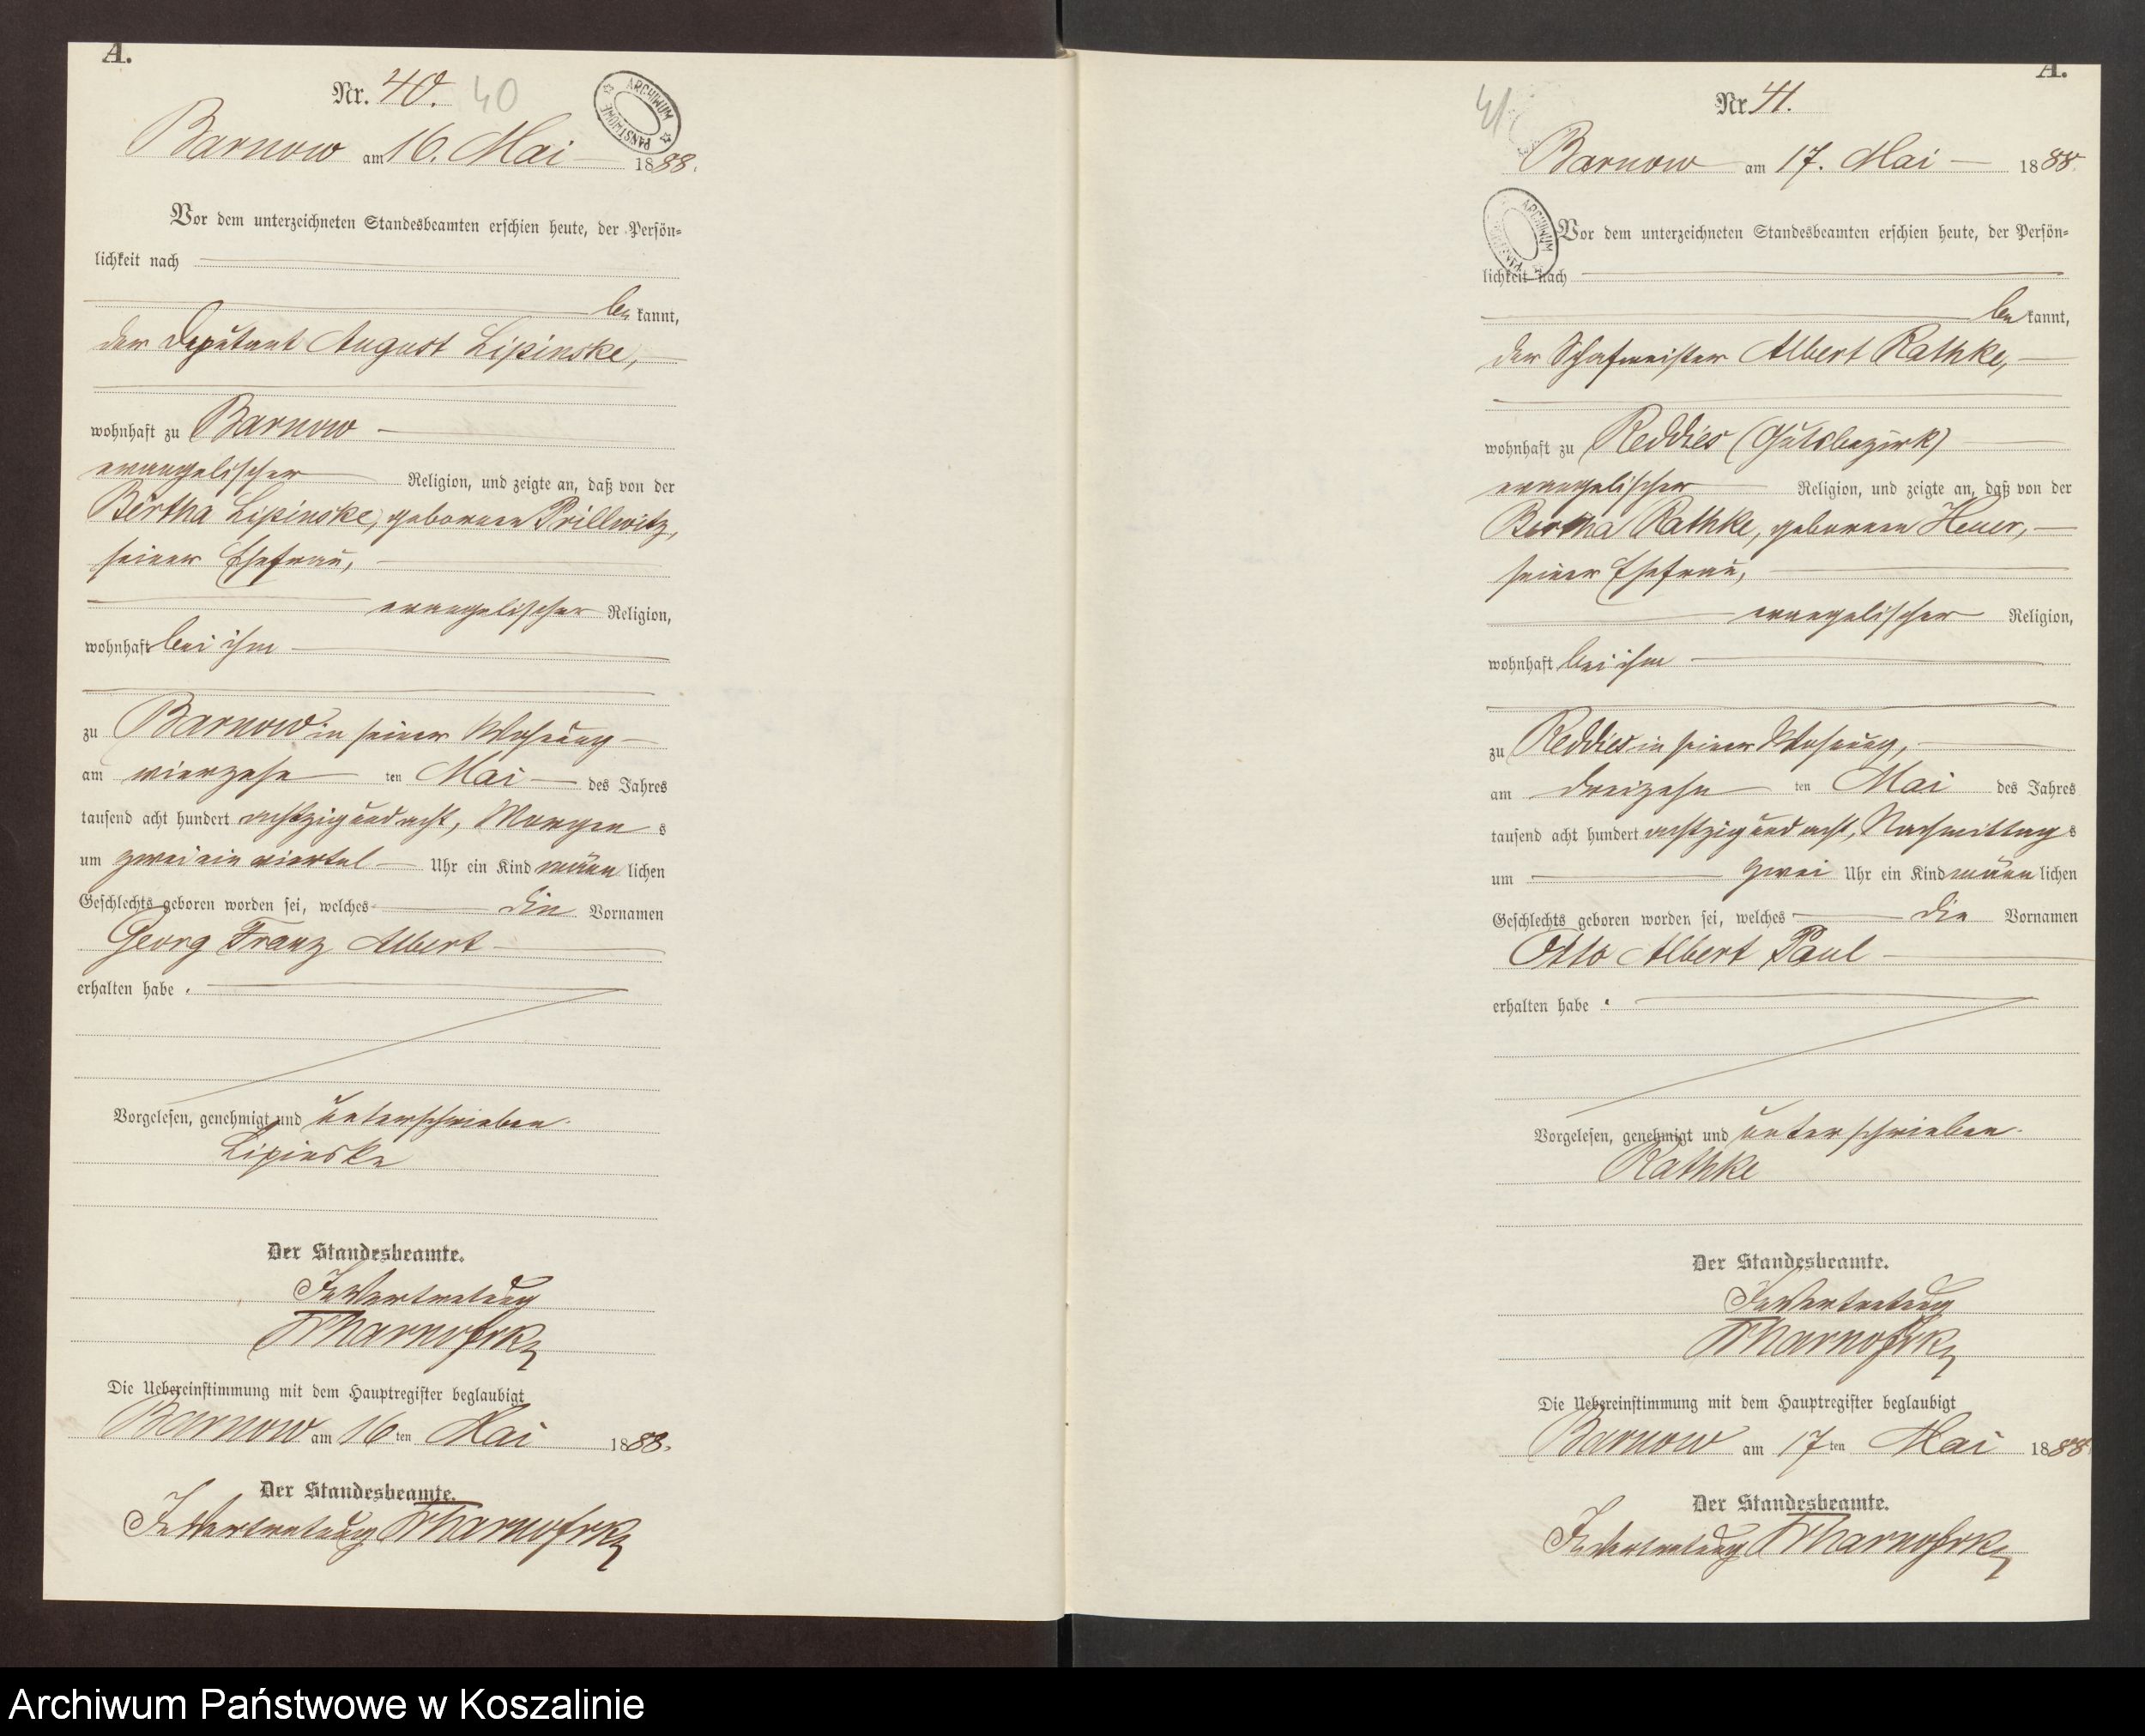 A.
Nr. 40. 40
ARCHIWUM PAŃSTWOWE
Barnow am 16. Mai 1888.
Vor dem unterzeichneten Standesbeamten erschien heute, der Persön=
lichkeit nach
be kannt,
der Deputant August Lipinske,
wohnhaft zu Barnow
evangelischer Religion, und zeigte an, daß von der
Bertha Lipinske, geborenen Prillwitz,
seiner Ehefrau,
evangelischer Religion,
wohnhaft bei ihm
zu Barnow in seiner Wohnung
am vierzehn ten Mai des Jahres
tausend acht hundert achtzig und acht, Morgen s
um zwei ein viertel Uhr ein Kind männ lichen
Geschlechts geboren worden sei, welches die Vornamen
Georg Franz Albert
erhalten habe .
Vorgelesen, genehmigt und unterschrieben.
Lipinske
Der Standesbeamte.
In Vertretung
Die Uebereinstimmung mit dem Hauptregister beglaubigt
Barnow am 16 ten Mai 1888.
Der Standesbeamte.
In Vertretung
A.
41 Nr 41.
Barnow am 17. Mai 1888.
ARCHIWUM PAŃSTWOWE
Vor dem unterzeichneten Standesbeamten erschien heute, der Persön=
lichkeit nach
be kannt,
der Schafmeister Albert Rathke,
wohnhaft zu Reddies (Gutsbezirk)
evangelischer Religion, und zeigte an, daß von der
Bertha Rathke, geborenen Heuer,
seiner Ehefrau,
evangelischer Religion,
wohnhaft bei ihm
zu Reddies in seiner Wohnung,
am dreizehn ten Mai des Jahres
tausend acht hundert achtzig und acht, Nachmittag s
um zwei Uhr ein Kind männ lichen
Geschlechts geboren worden sei, welches die Vornamen
Otto Albert Paul
erhalten habe .
Vorgelesen, genehmigt und unterschrieben.
Rathke
Der Standesbeamte.
In Vertretung
Die Uebereinstimmung mit dem Hauptregister beglaubigt
Barnow am 17 ten Mai 1888.
Der Standesbeamte.
In Vertretung
Archiwum Państwowe w Koszalinie